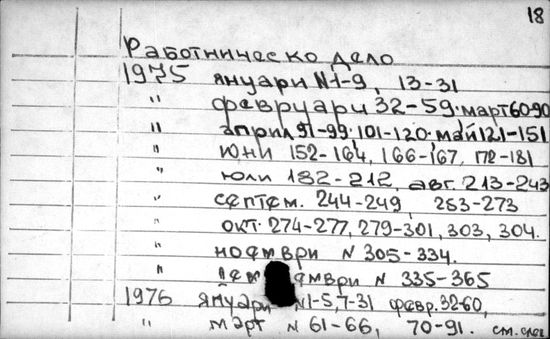 18
Работническо дело
1975 януари N1-9, 13-31
" февруари 32-59. март 60-90
" април 91-99, 101-120. май 121-151
" юни 152-164, 166-167, 172-181
" юли 182-212, авг. 213-243
" септем. 244-249, 253-273
" окт. 274-277, 279-301, 303, 304.
" ноември N 305-334.
" ември N 335-365
1976 януари N1-5, 7-31 февр. 32-60,
" март N 61-66, 70-91. см. след